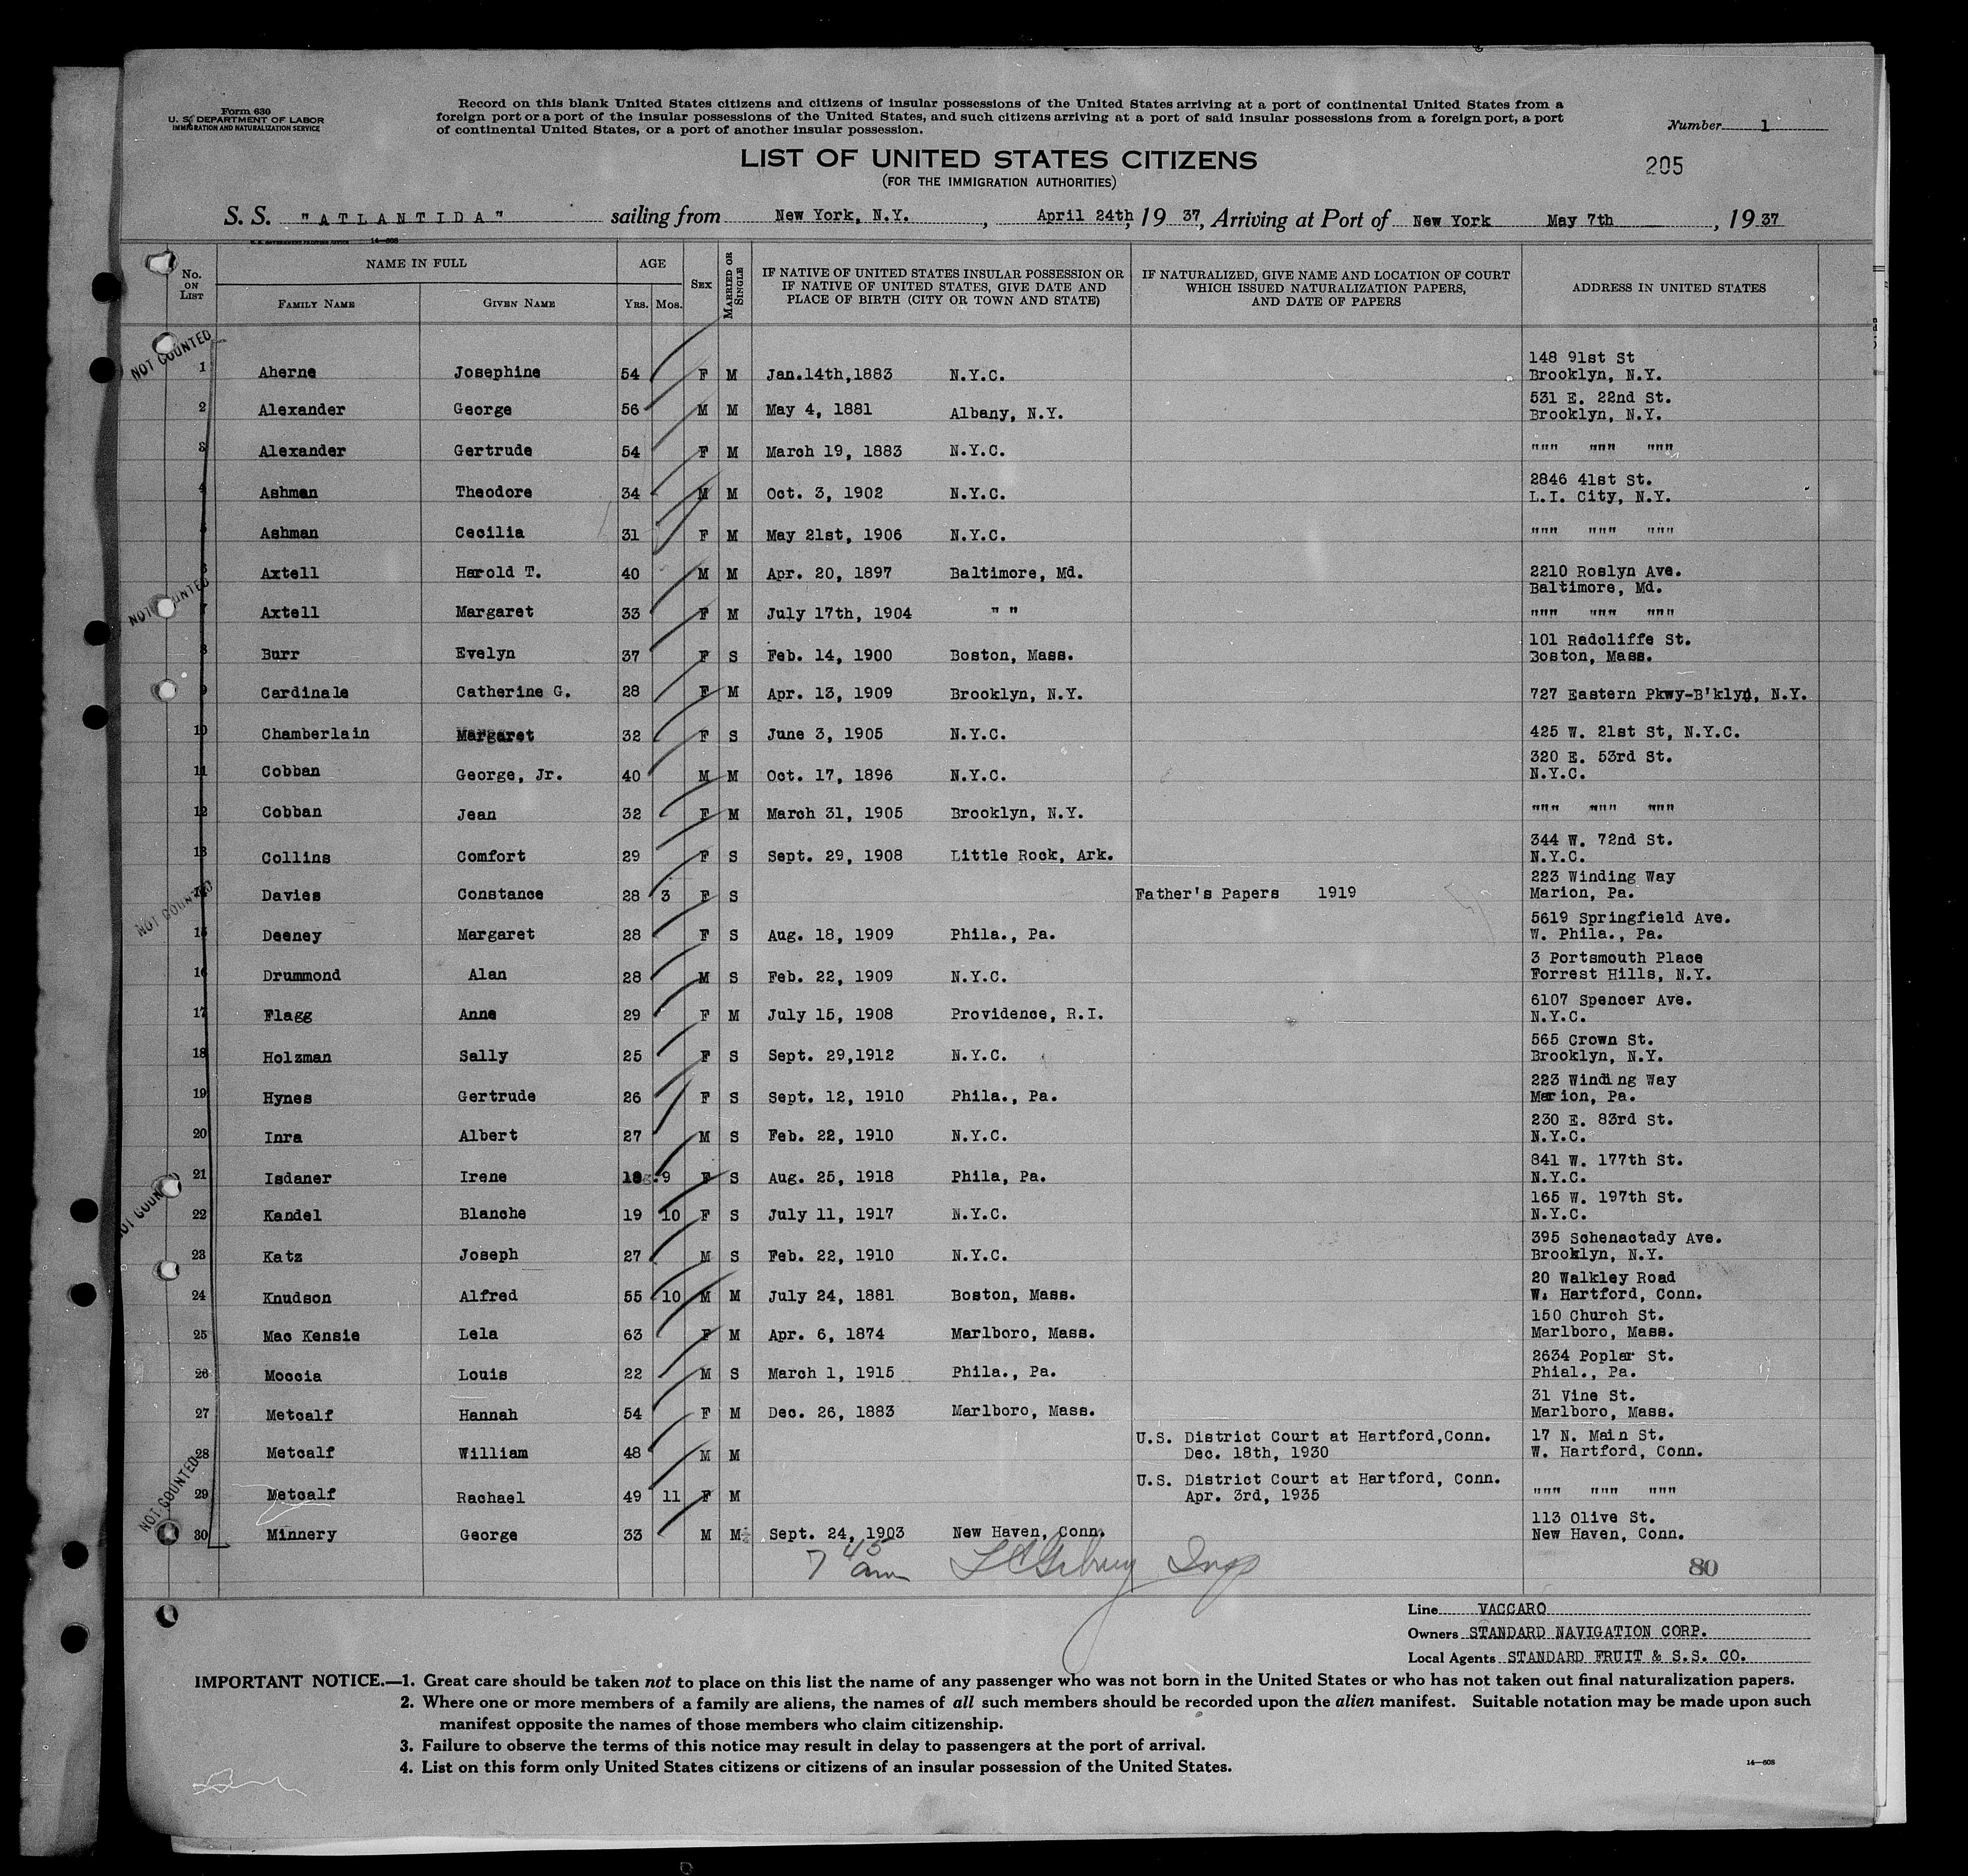 Form 630
U. S. DEPARTMENT OF LABOR
IMMIGRATION AND NATURALIZATION SERVICE
Record on this blank United States citizens and citizens of insular possessions of the United States arriving at a port of continental United States from a
foreign port or a port of the insular possessions of the United States, and such citizens arriving at a port of said insular possessions from a foreign port, a port
of continental United States, or a port of another insular possession.
Number 1
LIST OF UNITED STATES CITIZENS
(FOR THE IMMIGRATION AUTHORITIES)
205
S. S. "ATLANTIDA" sailing from New York, N.Y., April 24th, 19 37, Arriving at Port of New York May 7th, 19 37
U. S. GOVERNMENT PRINTING OFFICE 14—608
No. ON LIST
NAME IN FULL
FAMILY NAME GIVEN NAME
AGE
YRS. MOS.
SEX
MARRIED OR SINGLE
IF NATIVE OF UNITED STATES INSULAR POSSESSION OR
IF NATIVE OF UNITED STATES, GIVE DATE AND
PLACE OF BIRTH (CITY OR TOWN AND STATE)
IF NATURALIZED, GIVE NAME AND LOCATION OF COURT
WHICH ISSUED NATURALIZATION PAPERS,
AND DATE OF PAPERS
ADDRESS IN UNITED STATES
NOT COUNTED
148 91st St
1 Aherne Josephine 54 F M Jan.14th,1883 N.Y.C. Brooklyn, N.Y.
531 E. 22nd St.
2 Alexander George 56 M M May 4, 1881 Albany, N.Y. Brooklyn, N.Y.
3 Alexander Gertrude 54 F M March 19, 1883 N.Y.C. """ """ """
2846 41st St.
4 Ashman Theodore 34 M M Oct. 3, 1902 N.Y.C. L.I. City, N.Y.
5 Ashman Cecilia 31 F M May 21st, 1906 N.Y.C. """ """ """
6 Axtell Harold T. 40 M M Apr. 20, 1897 Baltimore, Md. 2210 Roslyn Ave.
Baltimore, Md.
NOT COUNTED
7 Axtell Margaret 33 F M July 17th, 1904 " " """ """ """
101 Radcliffe St.
8 Burr Evelyn 37 F S Feb. 14, 1900 Boston, Mass. Boston, Mass.
9 Cardinale Catherine G. 28 F M Apr. 13, 1909 Brooklyn, N.Y. 727 Eastern Pkwy-B'klyn, N.Y.
10 Chamberlain Margaret 32 F S June 3, 1905 N.Y.C. 425 W. 21st St, N.Y.C.
320 E. 53rd St.
11 Cobban George, Jr. 40 M M Oct. 17, 1896 N.Y.C. N.Y.C.
12 Cobban Jean 32 F M March 31, 1905 Brooklyn, N.Y. """ """ """
344 W. 72nd St.
13 Collins Comfort 29 F S Sept. 29, 1908 Little Rock, Ark. N.Y.C.
223 Winding Way
14 Davies Constance 28 3 F S Father's Papers 1919 Marion, Pa.
NOT COUNTED
5619 Springfield Ave.
15 Deeney Margaret 28 F S Aug. 18, 1909 Phila., Pa. W. Phila., Pa.
3 Portsmouth Place
16 Drummond Alan 28 M S Feb. 22, 1909 N.Y.C. Forrest Hills, N.Y.
6107 Spencer Ave.
17 Flagg Anne 29 F M July 15, 1908 Providence, R.I. N.Y.C.
565 Crown St.
18 Holzman Sally 25 F S Sept. 29,1912 N.Y.C. Brooklyn, N.Y.
223 Winding Way
19 Hynes Gertrude 26 F S Sept. 12, 1910 Phila., Pa. Marion, Pa.
230 E. 83rd St.
20 Inra Albert 27 M S Feb. 22, 1910 N.Y.C. N.Y.C.
841 W. 177th St.
21 Isdaner Irene 18 9 F S Aug. 25, 1918 Phila, Pa. N.Y.C.
165 W. 197th St.
NOT COUNTED
22 Kandel Blanche 19 10 F S July 11, 1917 N.Y.C. N.Y.C.
395 Schenactady Ave.
23 Katz Joseph 27 M S Feb. 22, 1910 N.Y.C. Brooklyn, N.Y.
20 Walkley Road
24 Knudson Alfred 55 10 M M July 24, 1881 Boston, Mass. W. Hartford, Conn.
150 Church St.
25 Mac Kensie Lela 63 F M Apr. 6, 1874 Marlboro, Mass. Marlboro, Mass.
2634 Poplar St.
26 Moccia Louis 22 M S March 1, 1915 Phila., Pa. Phial., Pa.
31 Vine St.
27 Metcalf Hannah 54 F M Dec. 26, 1883 Marlboro, Mass. Marlboro, Mass.
U.S. District Court at Hartford,Conn. 17 N. Main St.
28 Metcalf William 48 M M Dec. 18th, 1930 W. Hartford, Conn.
U.S. District Court at Hartford, Conn.
29 Metcalf Rachael 49 11 F M Apr. 3rd, 1935 """ """ """
NOT COUNTED
113 Olive St.
30 Minnery George 33 M M Sept. 24, 1903 New Haven, Conn. New Haven, Conn.
7 45 am Insp
80
Line VACCARO
Owners STANDARD NAVIGATION CORP.
Local Agents STANDARD FRUIT & S.S. CO.
IMPORTANT NOTICE.—1. Great care should be taken not to place on this list the name of any passenger who was not born in the United States or who has not taken out final naturalization papers.
2. Where one or more members of a family are aliens, the names of all such members should be recorded upon the alien manifest. Suitable notation may be made upon such
manifest opposite the names of those members who claim citizenship.
3. Failure to observe the terms of this notice may result in delay to passengers at the port of arrival.
4. List on this form only United States citizens or citizens of an insular possession of the United States.
14—608